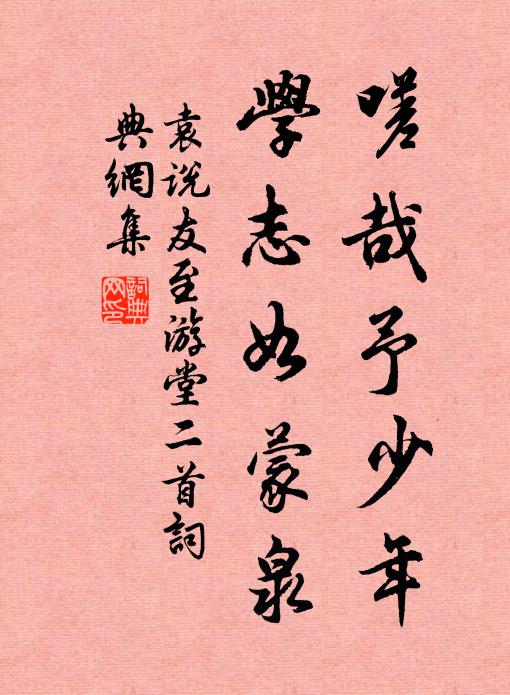 嗟哉予少年
學志如蒙泉
袁说友至游堂二首詞
典網集
詞典网印